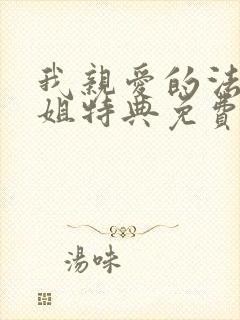 我親愛的法
姐特典免費
湯味